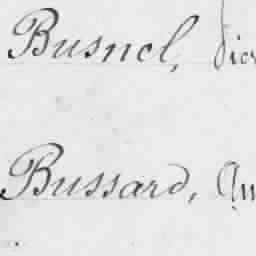 Busnel,
Bussard,